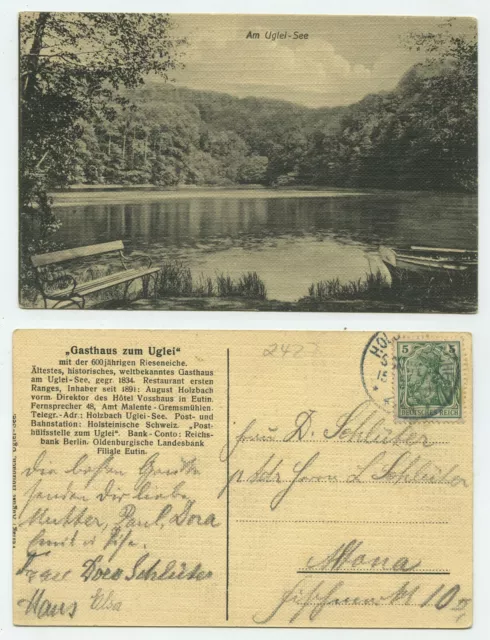 Am Uglei-See
„Gasthaus zum Uglei"
mit der 600jährigen Rieseneiche.
Ältestes, historisches, weltbekanntes Gasthaus
am Uglei-See, gegr. 1834. Restaurant ersten
Ranges, Inhaber seit 1891: August Holzbach
vorm. Direktor des Hôtel Vosshaus in Eutin.
Fernsprecher 48, Amt Malente-Gremsmühlen.
Telegr.-Adr.: Holzbach Uglei-See. Post- und
Bahnstation: Holsteinische Schweiz. „Post-
hülfsstelle zum Uglei". Bank-Conto: Reichs-
bank Berlin. Oldenburgische Landesbank
Filiale Eutin.
Verlag: August Holzbach, Uglei-See.
Die besten Grüße
senden Dir liebe
Mutter, Paul, Dora
Dora Schlüter
Hans Elsa
242
HOL
5 5
DEUTSCHES REICH
Frau D. Schlüter
Herrn L Schlüter
Altona
10